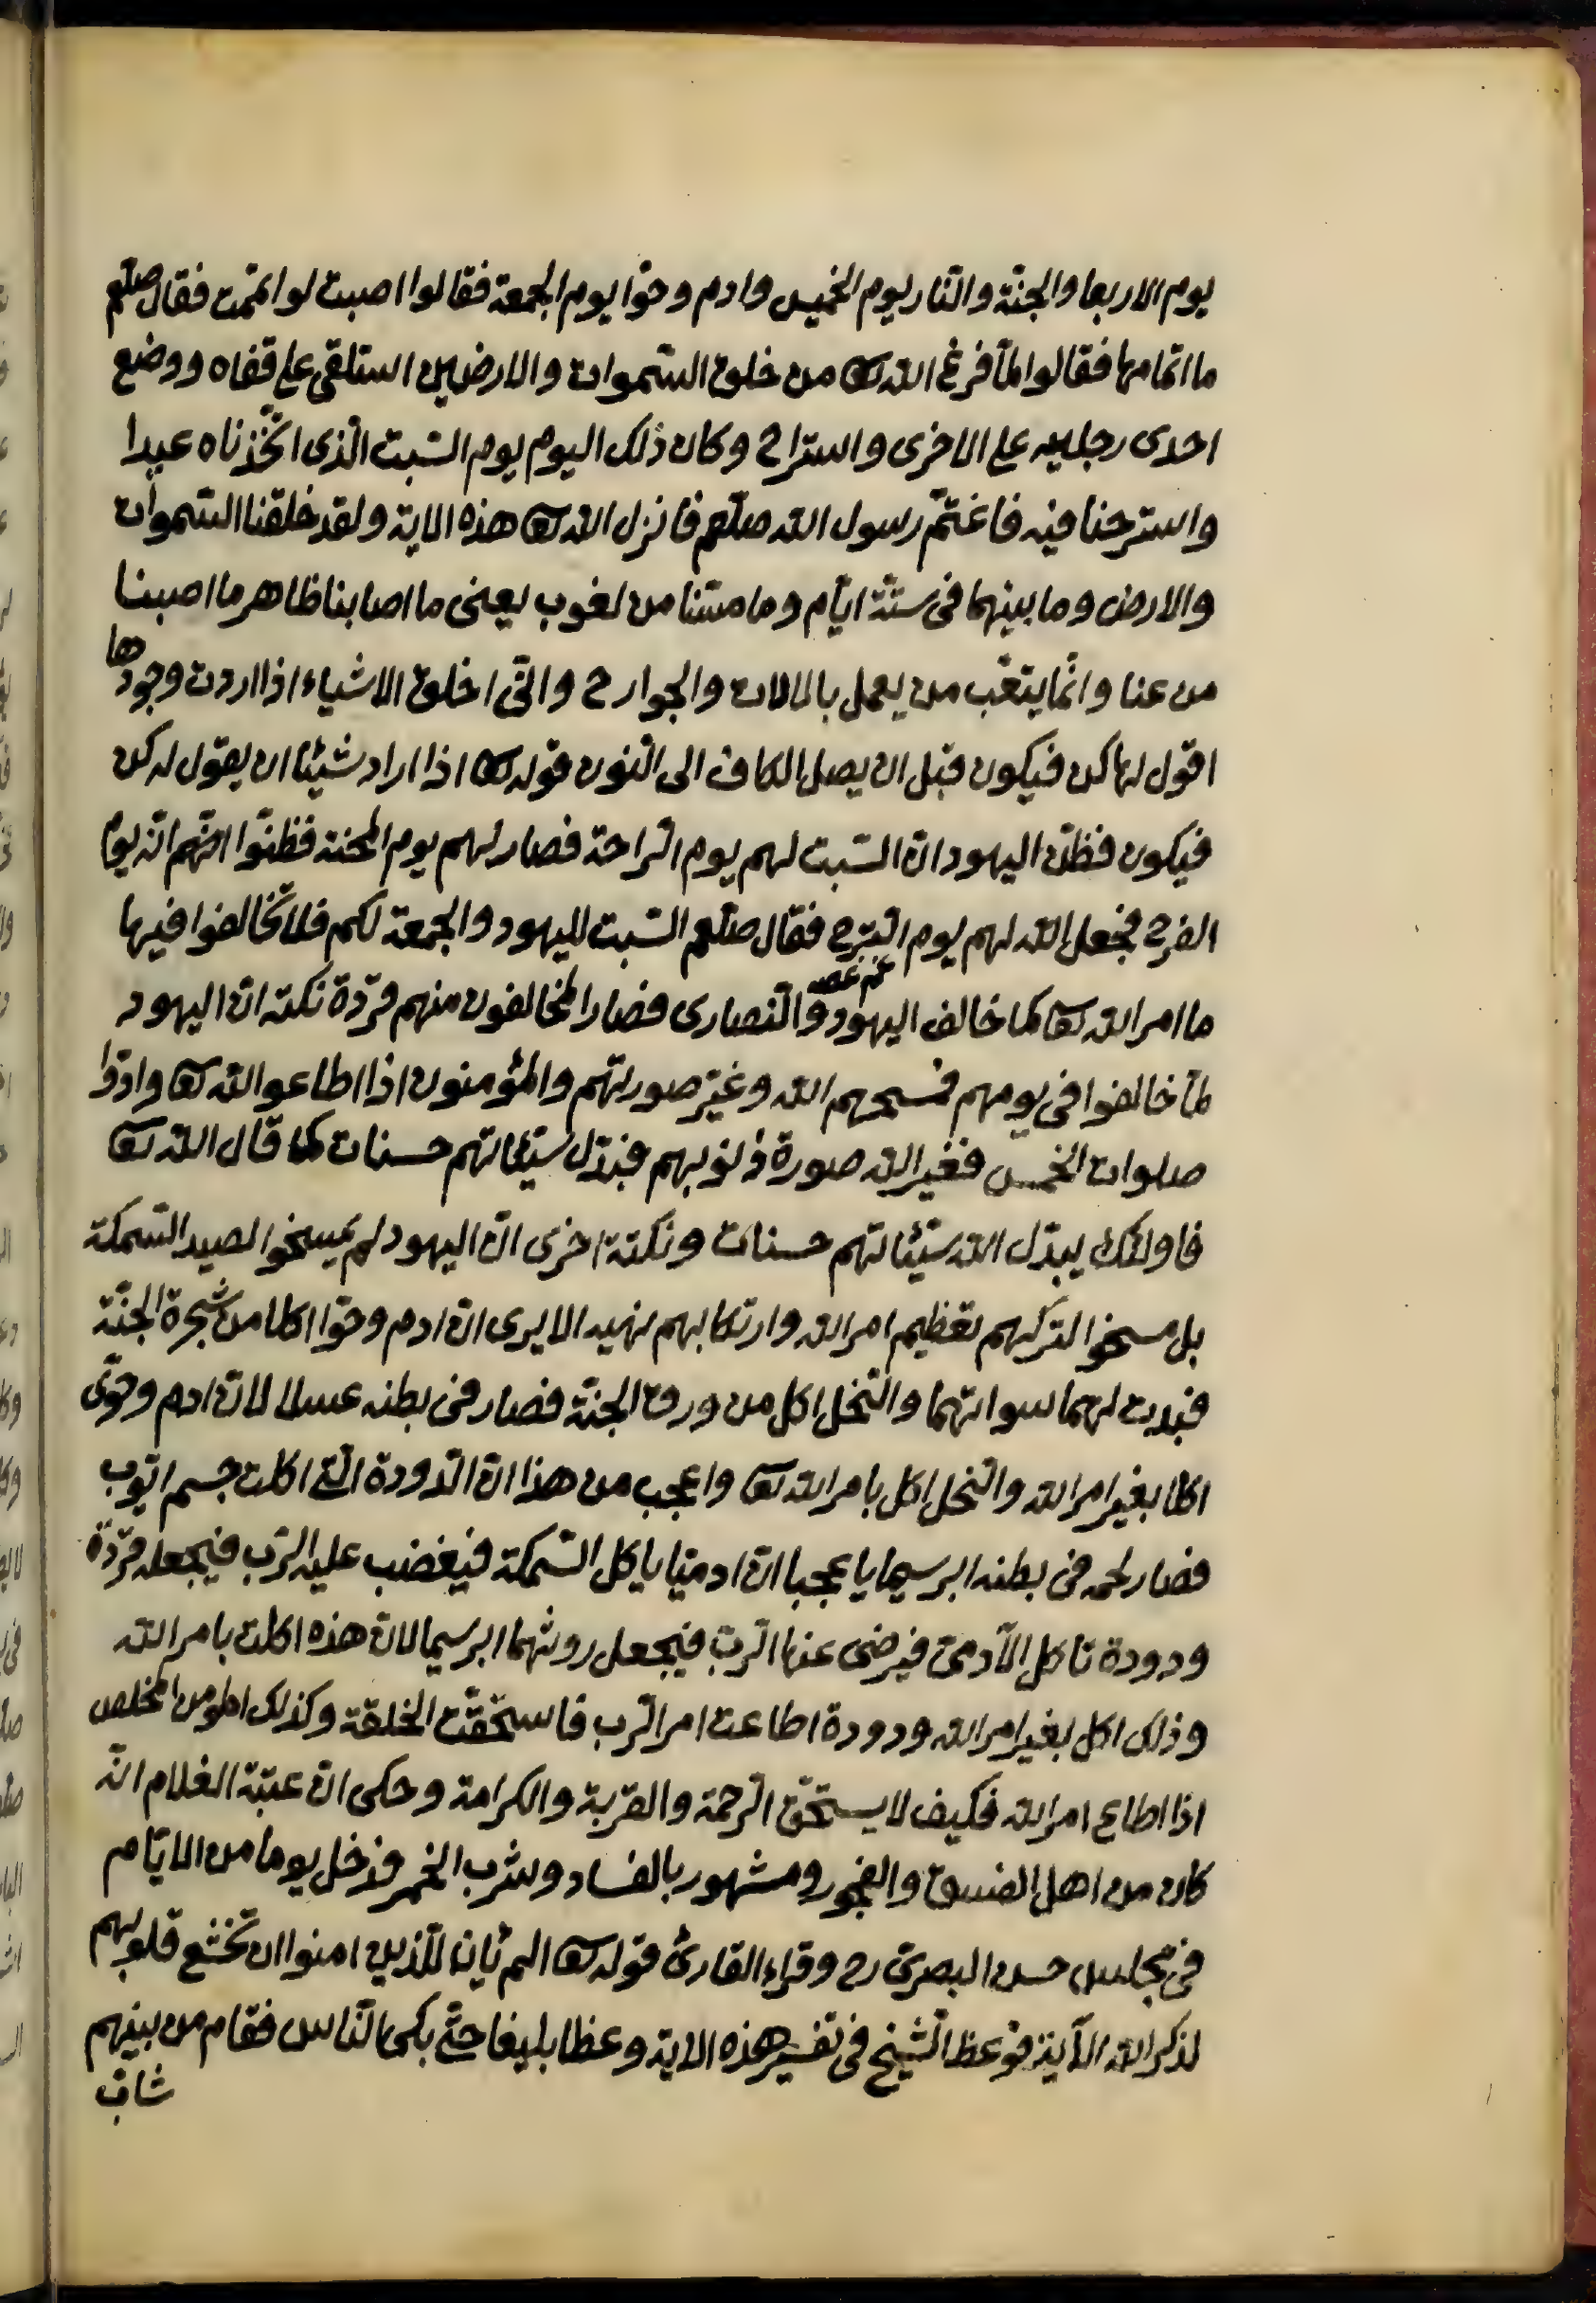 يوم الاربعا والجنّة والنّار يوم الخميس وادم وحوّا يوم الجمعة فقالوا اصبت لو اتممت فقال صلعم
ما اتمامها فقالوا لمّا فرغ الله تعا من خلق السّموات والارضين استلقى على قفاه ووضع
احدى رجليه على الاخرى واستراح وكان ذلك اليوم يوم السّبت الّذى اتّخذناه عيدا
واسترحنا فيه فاغتمّ رسول الله صلعم فانزل الله تعا هذه الاية ولقد خلقنا السّموات
والارض وما بينهما فى ستّة ايّام وما مسّنا من لغوب يعنى ما اصابنا ظاهر ما اصبنا
من عنا وانّما يتعّب من يعمل بالالات والجوارح وانّى اخلق الاشياء اذا اردت وجودها
اقول لها كن فيكون قبل ان يصل الكاف الى النّون قوله تعا اذا اراد شيئا ان يقول له كن
فيكون فظنّ اليهود انّ السّبت لهم يوم الرّاحة فصار لهم يوم المحنة فظنّوا انّهم انّه يوم
الفرح فجعل الله لهم يوم التّرح فقال صلعم السّبت لليهود والجمعة لكم فلا تخالفوا فيها
ما امر الله تعا كما خالف اليهود والنّصارى فصار المخالفون منهم قرّدة نكتة انّ اليهود
لمّا خالفوا فى يومهم فمسخهم الله وغيّر صورتهم والمؤمنون اذا اطاعو الله تعا وادّوا
صلوات الخمس فغير الله صورة ذنوبهم فبدّل سيّئاتهم حسنات كما قال الله تعا
فاولئك يبدّل الله سيّئاتهم حسنات ونكتة اخرى انّ اليهود لم يمسخوا لصيد السّمكة
بل مسخوا لتركهم تعظيم امر الله وارتكابهم نهيه الا يرى انّ ادم وحوّا اكلا من شجرة الجنّة
فبدت لهما سواتهما والنّحل اكل من ورق الجنّة فصار فى بطنه عسلا لانّ ادم وحوّى
اكلا بغير امر الله والنّحل اكل بامر الله تعا واعجب من هذا انّ الدّودة الّتى اكلت جسم ايّوب
فصار لحمه فى بطنه ابرسيما يا عجبا انّ ادميّا ياكل السّمكة فيغضب عليه الرّب فيجعله قرّدة
ودودة تاكل الآدمىّ فيرضى عنها الرّبّ فيجعل روثهما ابرسيما لانّ هذه اكلت بامر الله
وذلك اكل بغير امر الله ودودة اطاعت امر الرّب فاستحقّت الخلقة وكذلك المومن المخلص
اذا اطاع امر الله فكيف لا يستحقّ الرّحمة والقربة والكرامة وحكى انّ عتبة الغلام انّه
كان من اهل الفسق والفجور ومشهور بالفساد وشرب الخمر فدخل يوما من الايّام
فى مجلس حسن البصرىّ رح وقراء القارئ قوله تعا الم يأن للّذين امنوا ان تخشع قلوبهم
لذكر الله الآية فوعظ الشّيخ فى تفسير هذه الاية وعظا بليغا حتّى بكى النّاس فقام من بينهم
شابّ